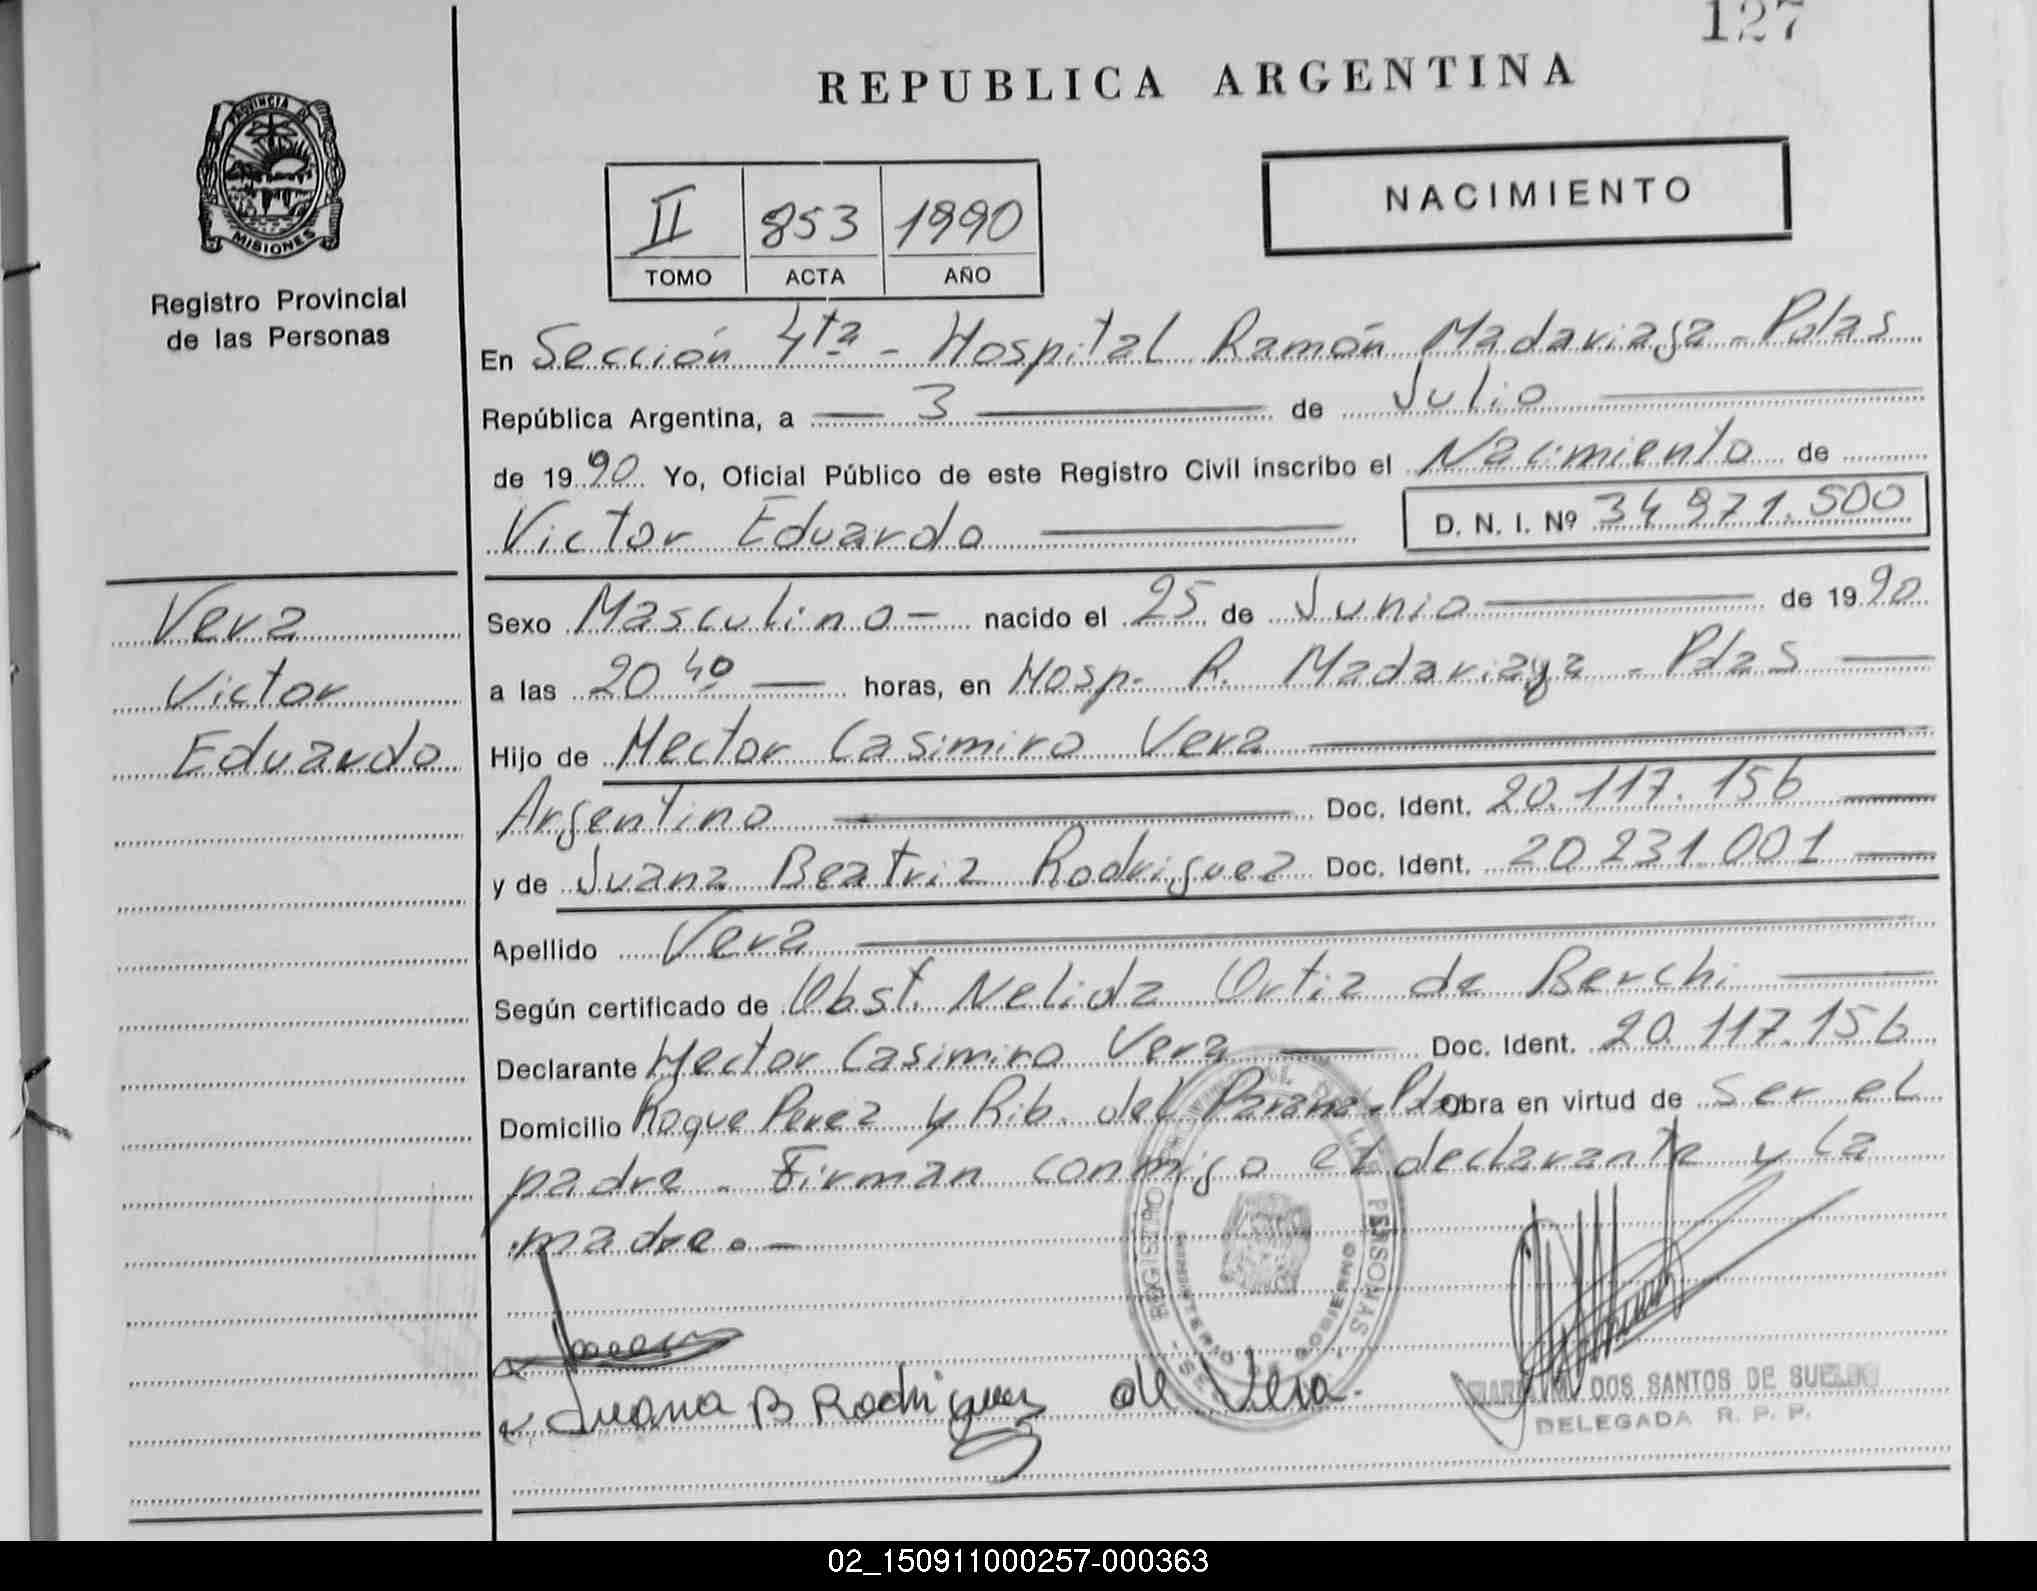 127
REPUBLICA ARGENTINA
PROVINCIA DE
MISIONES
Registro Provincial
de las Personas
II 853 1990
TOMO ACTA AÑO
NACIMIENTO
En Sección 4ta - Hospital Ramón Madariaga - Pdas
República Argentina, a 3 de Julio
de 1990 Yo, Oficial Público de este Registro Civil inscribo el Nacimiento de
Victor Eduardo D. N. I. Nº 34 971.500
Vera
Victor
Eduardo
Sexo Masculino - nacido el 25 de Junio de 1990
a las 20 40 horas, en Hosp. R. Madariaga - Pdas
Hijo de Hector Casimiro Vera
Argentino Doc. Ident. 20.117.156
y de Juana Beatriz Rodriguez Doc. Ident. 20 231 001
Apellido Vera
Según certificado de Obst. Nelida Ortiz de Berchi
Declarante Hector Casimiro Vera Doc. Ident. 20.117.156
Domicilio Roque Perez y Rib. del Parana - Pdas Obra en virtud de ser el
padre - Firman conmigo el declarante y la
madre. -
REGISTRO PROVINCIAL DE LAS PERSONAS
MINISTERIO DE GOBIERNO
Juana B Rodriguez de Vera.
DOS SANTOS DE
DELEGADA R. P. P.
02_150911000257-000363